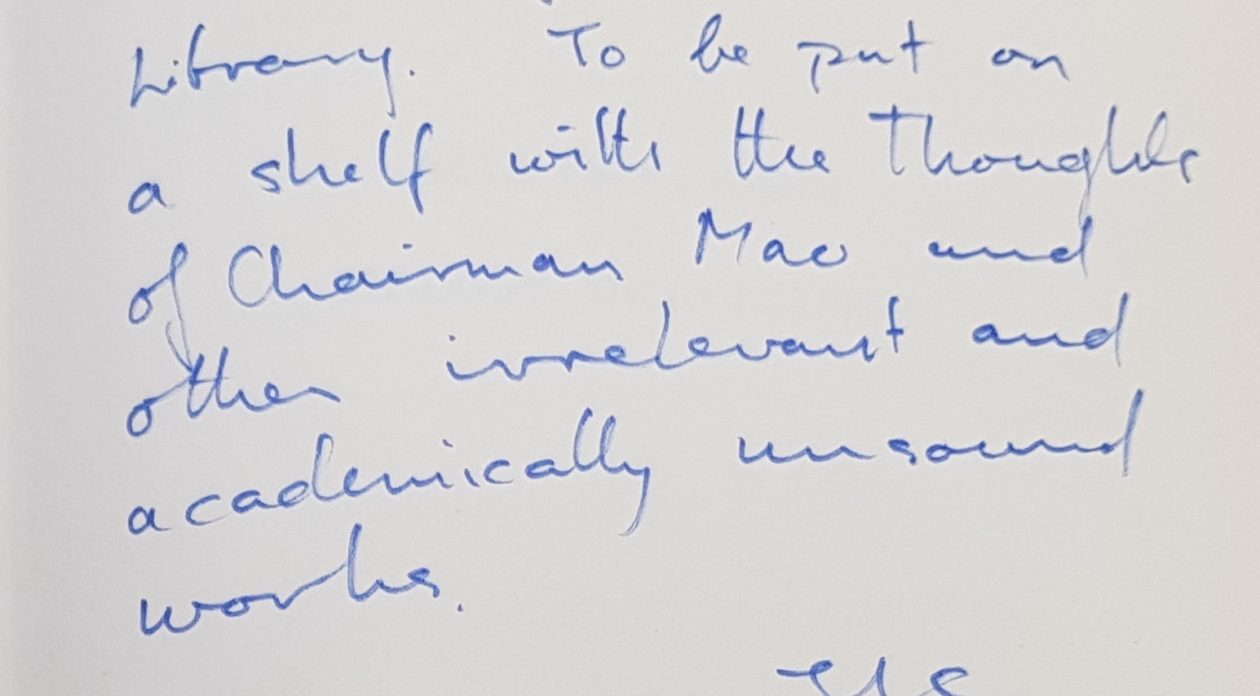 Library. To be put on
a shelf with the Thoughts
of Chairman Mao and
other irrelevant and
academically unsound
works.